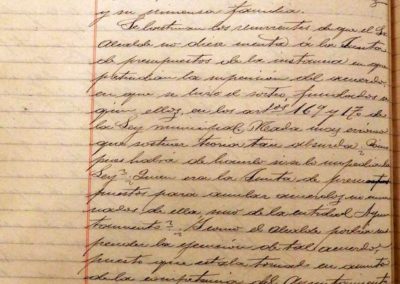 y su inmensa familia.
Se lastiman los recurrentes de que el Sr
Alcalde no diera cuenta á la Junta
de presupuestos de la instancia en que
pretendian la suspension del acuerdo
en que se hizo el sorteo, fundados en
que ellos, en los artos 169 y 170 de
la Ley municipal. Nada mas erroneo
que sostener teoria tan absurda.
pues habia de hacerlo si no lo
Ley? Quien era la Junta de presu
puestos para anular acuerdos no
nados de ella sino de la entidad Ayun
tamiento? Y como el alcalde podia sus
pender la ejecucion de tal acuerdo,
puesto que estaba tomado en asunto
de la competencia del Ayuntamiento